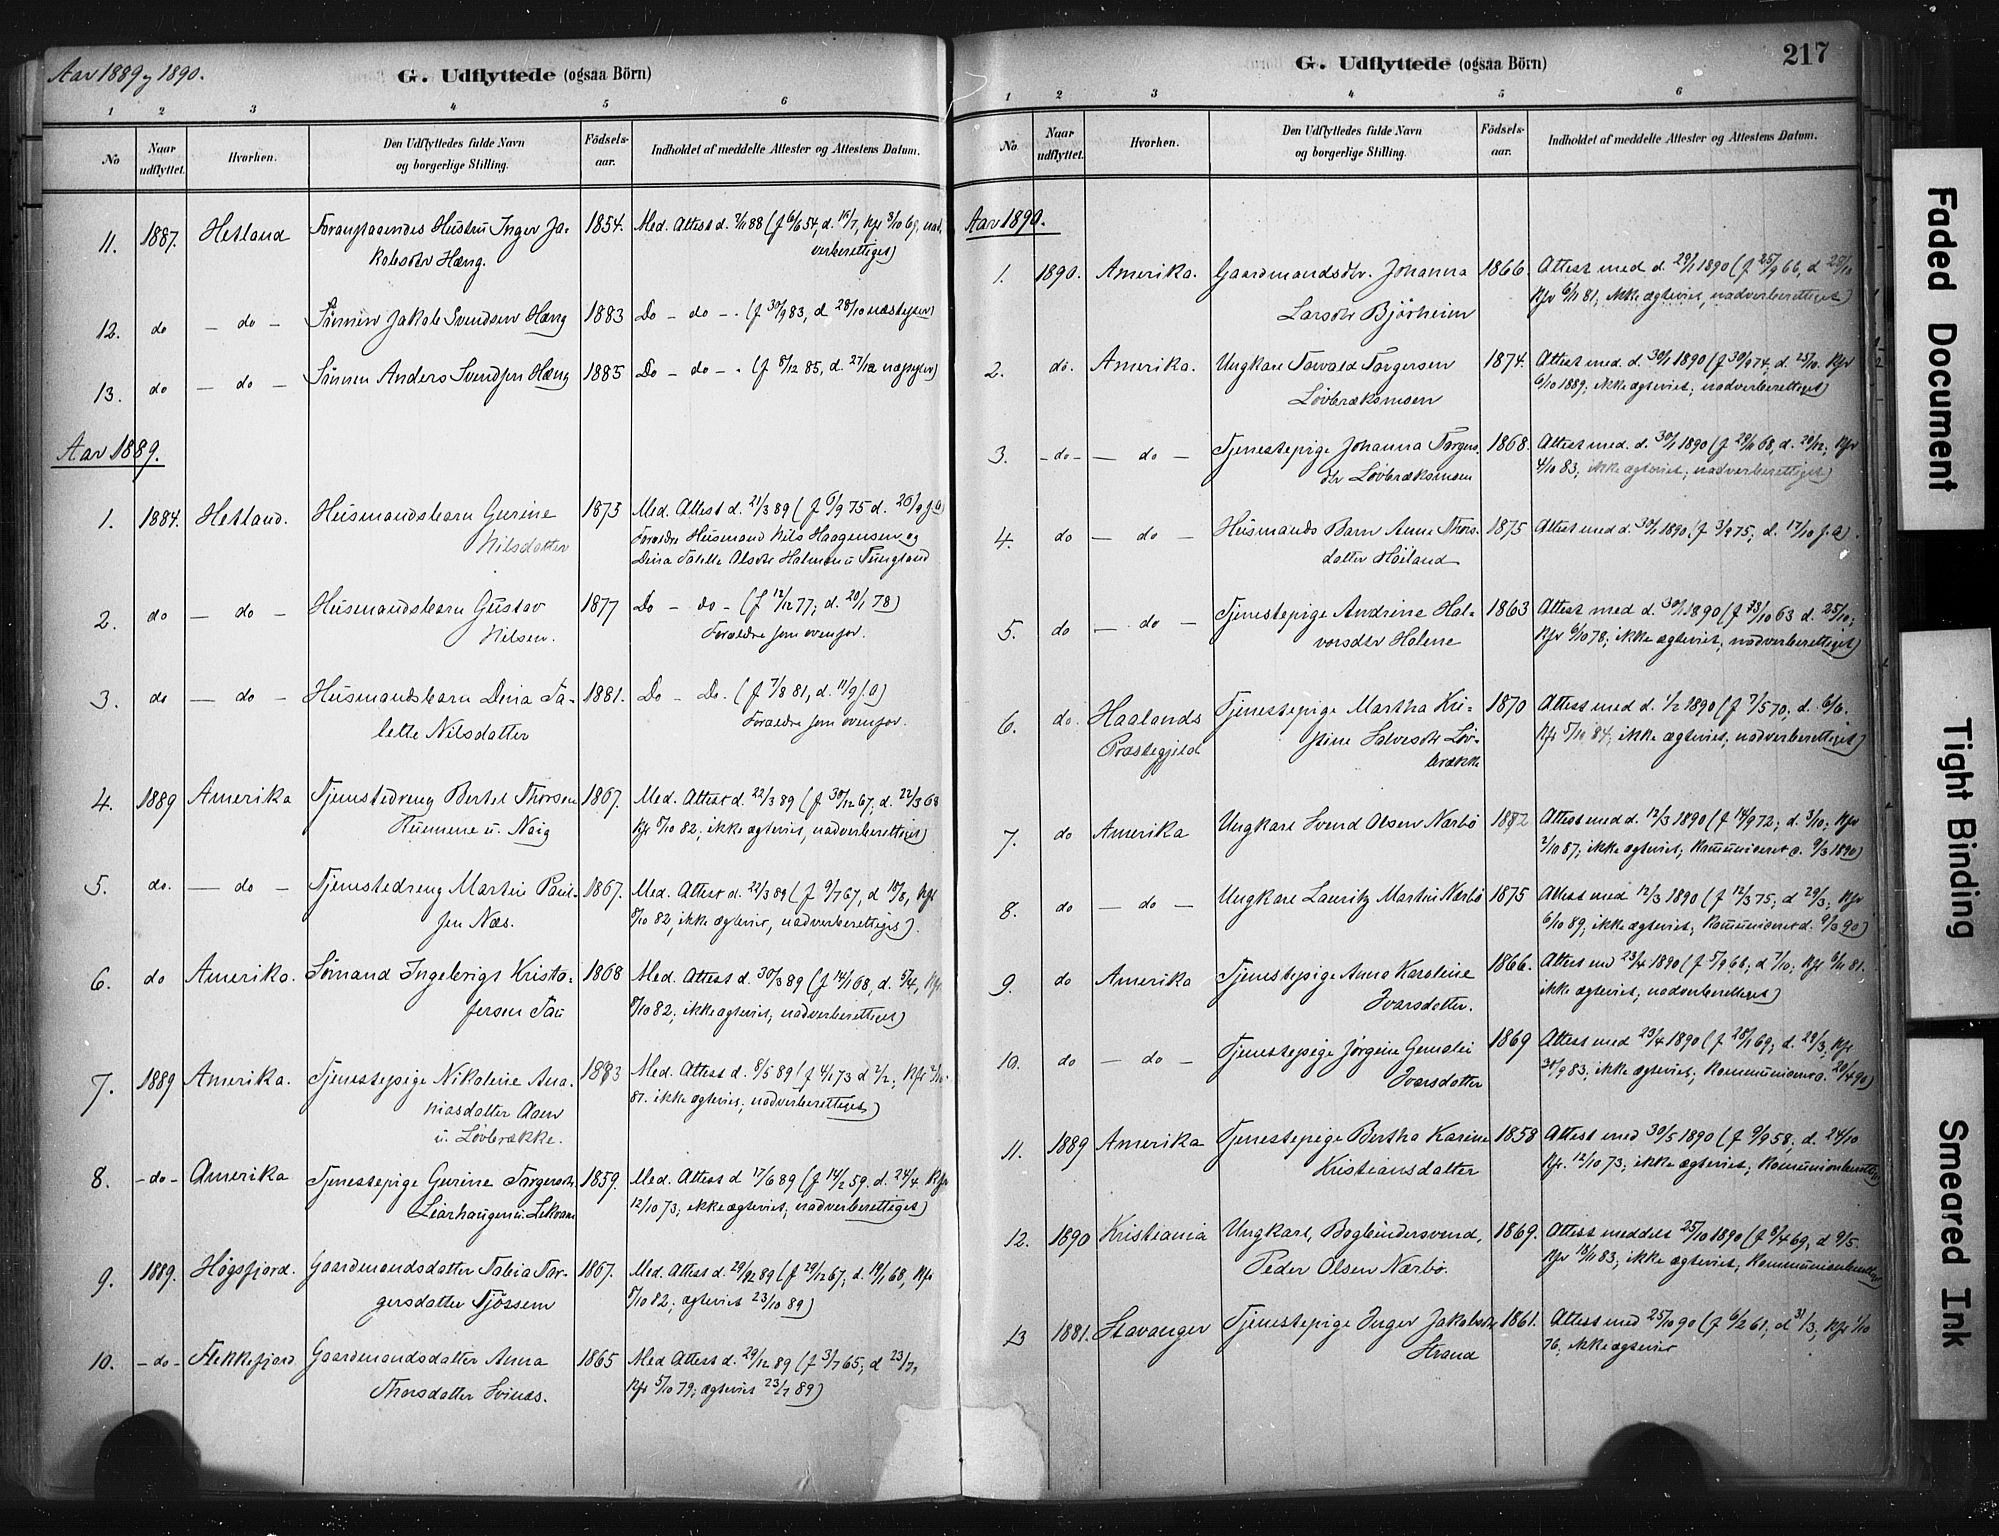 Aar 1889 og 1890.
G. Udflyttede (ogsaa Börn)
1 2 3 4 5 6
No
Naar udflyttet.
Hvorhen.
Den Udflyttedes fulde Navn og borgerlige Stilling.
Födsels-aar.
Indholdet af meddelte Attester og Attestens Datum.
11. 1887. Hetland Foranstaaendes Hustru Inger Ja- 1854. Med. Attest d. 88 (f 6/6 54, d. 15/7, Kfr 3/10 69, nad-
kobsdtr Hæng. verberettiget)
12. do – do – Sönnen Jakob Svendsen Hæng 1883 Do – do – . (f 30/9 83, d 28/10 næstefter)
13. do – do – Sönnen Anders Svendsen Hæng 1885 Do – do – . (f 8/12 85, d. 27/12
Aar 1889.
1. 1884. Hetland. Husmandsbarn Gurine 1875 Med. Attest d. 21/3 89 (f 6/9 75 d. 26/9 s.A)
Nilsdatter Forældre Husmand Nils Haagensen og
Dina Talette Olsdtr Holmen u Tungland
2. do – do – Husmandsbarn Gustav 1877 Do – do – (f 12/12 77; d. 20/1 78)
Nilsen. Forældre som ovenfor.
3. do – do – Husmandsbarn Dina Ta- 1881. Do – Do. (f 7/8 81, d. 11/9 s.A)
lette Nilsdatter Forældre som ovenfor.
4. 1889 Amerika Tjenestedreng Bertel Thorsen 1867. Med. Attest d. 22/3 89 (f 30/12 67, d. 22/3 68
u. Næig Kfr 8/10 82; ikke ægteviet, nadverberettiget)
5. do. – do – Tjenestedreng Martin Paul- 1867. Med. Attest d. 22/3 89 (f 9/7 67, d 18/8, Kfr
sen Næs. 8/10 82, ikke ægteviet, nadverberettiget).
6. do Amerika. Sömand Ingebrigt Kristo- 1868 Med. Attest d. 30/3 89 (f 14/1 68, d. 5/4, Kfr
fersen Tau 8/10 82; ikke ægteviet; nadverberettiget)
7. 1889 Amerika. Tjenestepige Nikoline Ana- 1873 Med. Attest d. 8/5 89 (f 4/1 73 d 2/2, Kfr 2/10
niasdatter Aaen 87. ikke ægteviet; nadverberettiget)
u. Lövbrække.
8. – do – Amerika Tjenestepige Gurine Torgersdtr 1859. Med. Attest d 17/6 89 (f 14/2 59. d. 24/4. Kfr
Liarhaugen u. Lekvam 12/10 73; ikke ægteviet; nadverberettiget)
9. 1889. Högsfjord. Gaardmandsdatter Tabia Tor- 1867. Med. Attest d. 29/12 89 (f 29/12 67; d. 19/1 68, Kfr
gersdatter Tjössem 8/10 82; ægteviet 23/10 89)
10. – do – Flekkefjord Gaardmandsdatter Anna 1865 Med Attest d. 29/12 89 (f 3/7 65; d 23/7,
Thorsdatter Svines. Kfr 5/10 79; ægteviet 23/7 89)
217
G. Udflyttede (ogsaa Börn)
1 2 3 4 5 6
No
Naar udflyttet.
Hvorhen.
Den Udflyttedes fulde Navn og borgerlige Stilling.
Födsels-aar.
Indholdet af meddelte Attester og Attestens Datum.
Aar 1890.
1. 1890. Amerika. Gaardmandsdtr. Johanna 1866. Attest med d. 29/1 1890 (f 25/9 66, d 25/10
Larsdtr Bjørheim Kfr 6/11 81, ikke ægteviet, nadverberettiget)
2. do. Amerika. Ungkare Torvald Torgersen 1874. Attest med. d. 30/1 1890 (f 30/9 74; d. 25/10. Kfr
Lövbræksmoen 6/10 1889; ikke ægteviet; nadverberettiget)
3. – do – – do – Tjenestepige Johanna Torgers- 1868. Attest med. d. 30/1 1890 (f 29/11 68, d. 20/12; Kfr
dtr Lövbræksmoen 4/10 83; ikke ægteviet; nadverberettiget)
4. do – do – Husmands Barn Anne Thors- 1875 Attest med d. 30/1 1890. (f 3/9 75; d. 17/10 s.A).
datter Höiland
5. do – do – Tjenestepige Andrine Hal- 1863 Attest med d. 30/1 1890 (f 23/10 63 d. 25/10;
vorsdtr Holene Kfr 6/10 78; ikke ægteviet, nadverberettiget)
6. do. Haalands Tjenestepige Martha Kri- 1870 Attest med d. 1/2 1890 (f 7/5 70; d. 6/6.
Præstegjeld stine Salvesdtr Löv- Kfr 5/10 84; ikke ægteviet, nadverberettiget)
brække
7. do Amerika Ungkare Svend Olsen Nærbö 1872 Attest med d. 12/3 1890 (f 14/9 72; d. 3/10; Kfr
2/10 87; ikke ægteviet; Kommuniceret d. 9/3 1890)
8. do – do – Ungkare Lauritz Martin Nærbö 1875 Attest med 12/3 1890 (f 12/3 75; d 29/3; Kfr
6/10 89, ikke ægteviet; Kommuniceret d. 9/3 90)
9. do Amerika Tjenestepige Anna Karoline 1866. Attest med 23/4 1890 (f 5/9 66; d 7/10; Kfr 6/11 81.
Ivarsdatter. ikke ægteviet, nadverberettiget)
10. do – do – Tjenestepige Jörgine Gunolie 1869 Attest med 23/4 1890 (f 28/1 69; d. 29/3, Kfr
Ivarsdatter 30/9 83; ikke ægteviet; Kommuniceret d. 20/4 90)
11. 1889 Amerika Tjenestepige Bertha Karine 1858 Attest med 30/5 1890 (f 9/9 58, d. 24/10
Kristiansdatter Kfr. 12/10 73; ikke ægteviet; Kommunionberettiget)
12. 1890 Kristiania Ungkarl, Bogbindersvend, 1869. Attest meddelt 25/10 1890 (f 8/4 69, d 9/5.
Peder Olsen Nærbö. Kfr 18/11 83; ikke ægteviet; Kommunionberettiget
13 1881. Stavanger Tjenestepige Inger Jakobsdtr 1861. Attest med 25/10 90 (f 6/2 61; d 31/3; Kfr 1/10
Strand 76; ikke ægteviet
Faded Document
Tight Binding
Smeared Ink